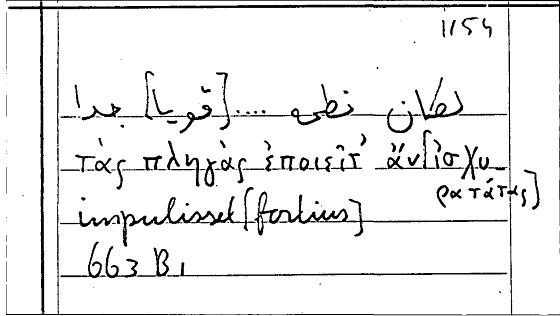 1154
لكان .... [قويا] جدا
τὰς πληγὰς ἐποιεῖτ᾽ ἄν [ἰσχυ-
ρατάτας]
impulisset [fortius]
663 B 1